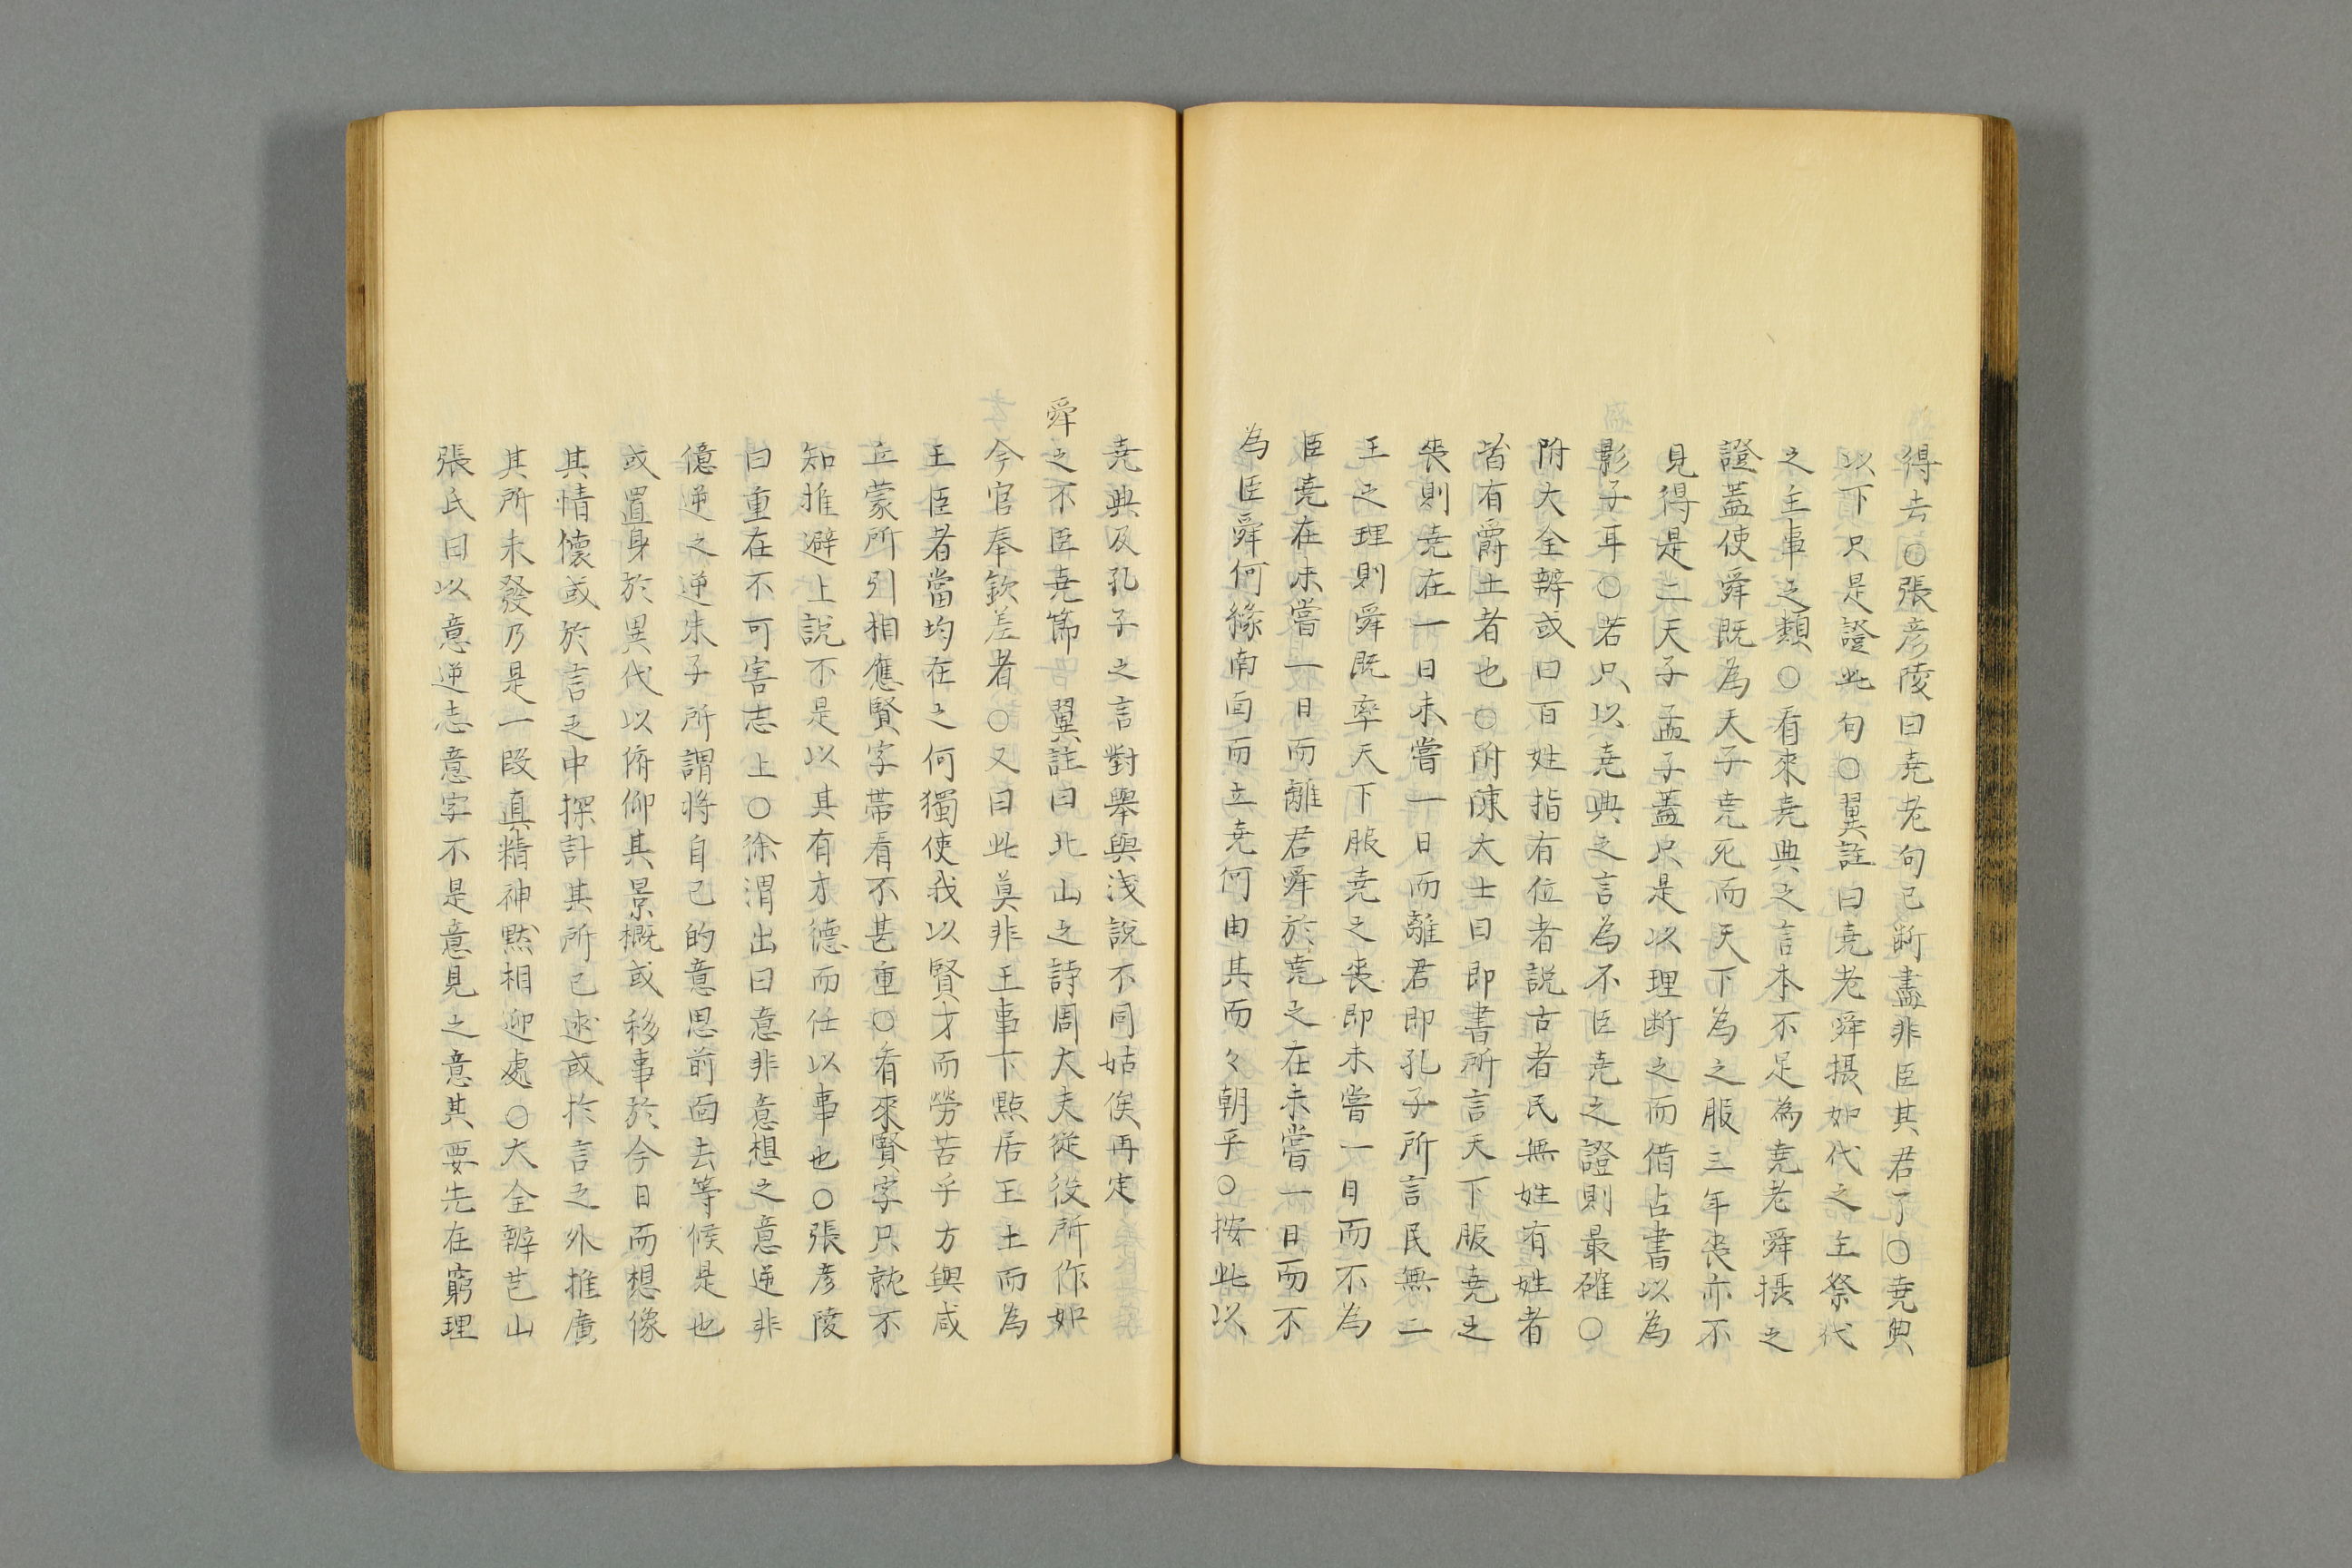 得去○張彥陵曰堯老句已斷盡非臣其君了○堯典
以下只是證此句○翼註曰堯老舜摄如代之主祭代
之主事之類○看來堯典之言本不足為堯老舜摂之
證蓋使舜既為天子堯死而天下為之服三年喪亦不
見得是二天子孟子蓋只是以理断之而借古書以為
影子耳○若只以堯典之言為不臣堯之證則最確○
附大全辨或曰百姓指有位者説古者民無姓有姓者
皆有爵土者也○附陳大士曰即書所言天下服堯之
喪則堯在一日未嘗一日而離君即孔子所言民無二
王之理則舜既率天下服堯之喪即未嘗一日而不為
臣堯在未嘗一日而離君舜於堯之在未嘗一日而不
為臣舜何緣南面而立堯何由其而々朝乎○按此以
堯典及孔子之言對舉與浅説不同姑俟再定
舜之不臣堯節 翼註曰北山之詩周大夫從役所作如
今官奉欽差者○又曰此莫非王事下㸃居王土而為
王臣者當均在之何獨使我以賢才而勞苦乎方與咸
立蒙所引相應賢字帯看不甚重○看來賢字只就不
知推避上説不是以其有才德而任以事也○張彥陵
曰重在不可害志上○徐渭出曰意非意想之意逆非
億逆之逆朱子所謂将自己的意思前面去等候是也
或置身於異代以俯仰其景概或移事於今日而想像
其情懐或於言之中探計其所已逑或於言之外推廣
其所未發乃是一段真精神黙相迎處○大全辨芑山
張氏曰以意逆志意字不是意見之意其要先在窮理